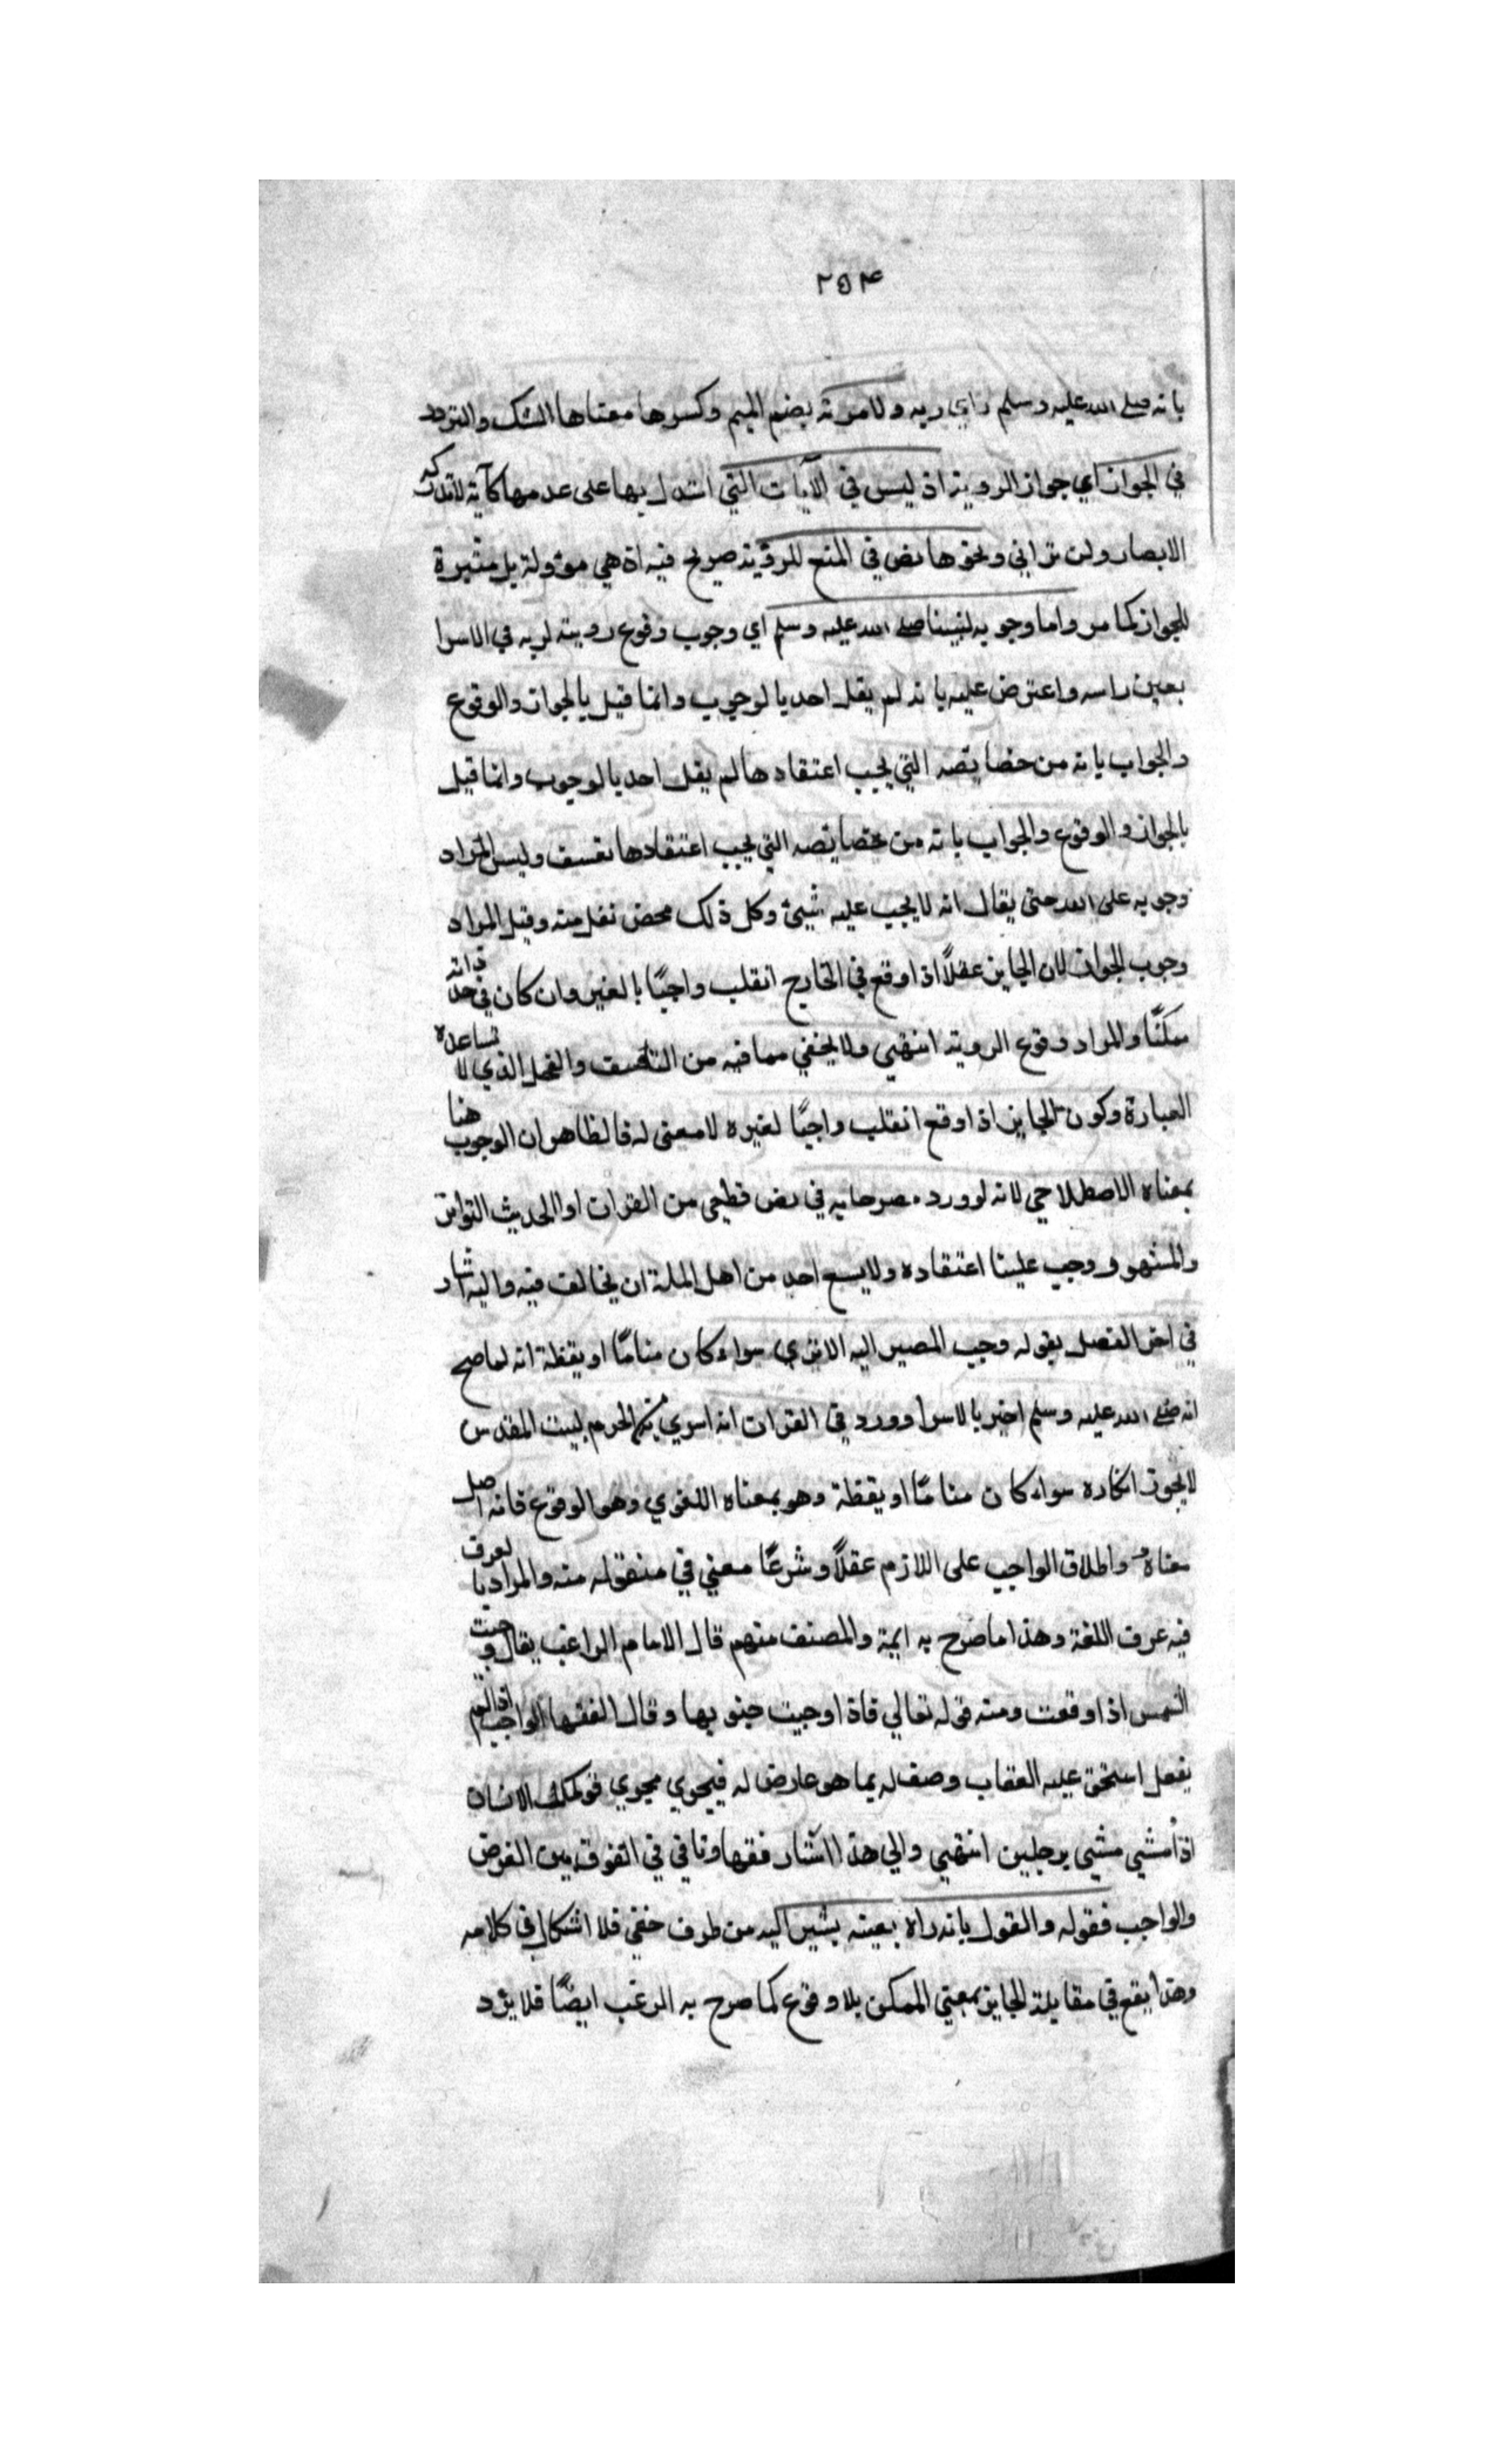 ٢٥٤
بانه صلى الله عليه وسلم راي ربه ولا مرية بضم الميم وكسرها معناها الشك والتردد
في الجواز اي جواز الروية اذ ليس في الآيات التي استدل بها على عدمها كآية لا تدركه
الابصار ولن تراني ونحوها نص في المنع للرؤية صريح فيه اذ هي مؤولة بل مشيرة
للجواز كما مر واما وجوبه لنبينا صلى الله عليه وسلم اي وجوب وقوع رويته لربه في الاسرا
بعين راسه واعترض عليه بانه لم يقل احد بالوجوب وانما قيل بالجواز والوقوع
والجواب بانه من خصايصه التي يجب اعتقادها لم يقل احد بالوجوب وانما قيل
بالجواز والوقوع والجواب بانه من خصايصه التي يجب اعتقادها تعسف وليس المراد
وجوبه على الله حتى يقال انه لا يجب عليه شيئ وكل ذلك محض نفل منه وقيل المراد
وجوب الجواز لان الجايز عقلاً اذا وقع في الخارج انقلب واجبًا بالغير وان كان في حد ذاته
ممكنًا والمراد وقوع الروية انتهي ولا يخفي مما فيه من التعسف والتمحل الذي لا تساعده
العبارة وكون الجايز اذا وقع انقلب واجبًا لغيره لا معنى له فالظاهر ان الوجوب هنا
بمعناه الاصطلاحي لانه لو ورد مصرحا به في نص قطعي من القران او الحديث التواتر
والمشهور وجب علينا اعتقاده ولا يسع احد من اهل الملة ان يخالف فيه واليه اشار
في اخر الفصل بقوله وجب المصير اليه الا تري سواء كان منامًا او يقظة انه لما صح
انه صلى الله عليه وسلم اخبر بالاسرا وورد في القران انه اسري به من الحرم لبيت المقدس
لا يجوز انكاره سواء كان منامًا او يقظة وهو بمعناه اللغوي وهو الوقوع فانه اصل
معناه واطلاق الواجب على اللازم عقلاً وشرعًا معني في منقوله منه والمراد بالعرف
فيه عرف اللغة وهذا ما صرح به ايمة والمصنف منهم قال الامام الراغب يقال وجبت
الشمس اذا وقعت ومنه قوله تعالي فاذا وجبت جنوبها وقال الفقها الواجب اذا لم
يفعل استحق عليه العقاب وصف له بما هو عارض له فيجري مجري قولك الانسان
اذا مشي مشي برجلين انتهي والي هذا اشار فقهاونا في في الفرق بين الفرض
والواجب فقوله والقول بانه راه بعينه يشير اليه من طرف خفي فلا اشكال في كلامه
وهذا يقع في مقابلة الجايز بمعني الممكن بلا وقوع كما صرح به الرغب ايضًا فلا يرد